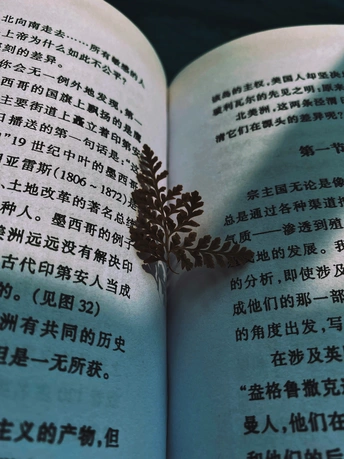 北向南走去……所有敏感的人
上帝为什么如此不公平？
刻的差异。
你会无一例外地发现，第一
西哥的国旗上飘扬的是
主要街道上矗立着印第
日播送的第一句话是：
”19 世纪中叶的墨西
亚雷斯（1806～1872）是
、土地改革的著名总统
种人。墨西哥的例子
美洲远远没有解决印
古代印第安人当成
的。（见图 32）
洲有共同的历史
但是一无所获。
主义的产物，但
岛的主权，美国人却坚决
蒙利瓦尔的先见之明；原来
北美洲，这两条经渭日
清它们在源头的差异呢？
第一节
宗主国无论是像
总是通过各种渠道把
质——渗透到殖
地的发展。我
的分析，即使涉及
成他们的那一部
的角度出发，写
在涉及英
“盎格鲁撒克
曼人，他们在
和他们的后